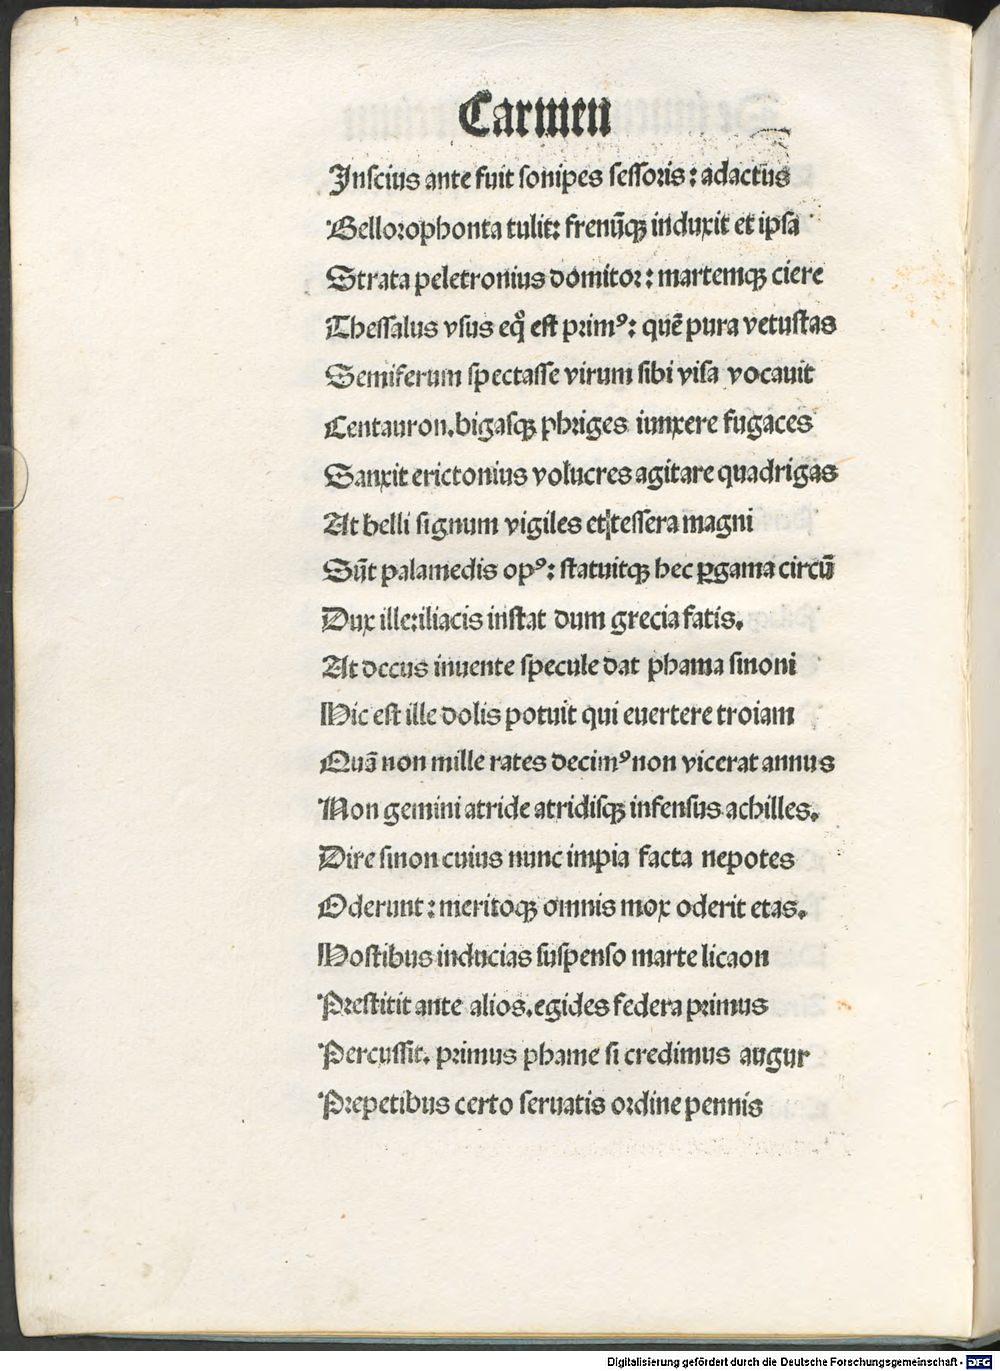 Carmen
Inscius ante fuit sonipes sessoris: adactus
Bellorophonta tulit: frenūqꝫ induxit et ipsa
Strata peletronius domitor: martemqꝫ ciere
Thessalus vsus eqͦ est primꝰ: quē pura vetustas
Semiferum spectasse virum sibi visa vocauit
Centauron. bigasqꝫ phriges iunxere fugaces
Sanxit erictonius volucres agitare quadrigas
At belli signum vigiles et tessera magni
Sūt palamedis opꝰ: statuitqꝫ hec ꝑgama circū
Dux ille: iliacis instat dum grecia fatis.
At decus inuente specule dat phama sinoni
Hic est ille dolis potuit qui euertere troiam
Quā non mille rates decimꝰ non vicerat annus
Non gemini atride atridisqꝫ infensus achilles.
Dire sinon cuius nunc impia facta nepotes
Oderunt: meritoqꝫ omnis mox oderit etas.
Hostibus inducias suspenso marte licaon
Prestitit ante alios. egides federa primus
Percussit. primus phame si credimus augur
Prepetibus certo seruatis ordine pennis
Digitalisierung gefördert durch die Deutsche Forschungsgemeinschaft - DFG